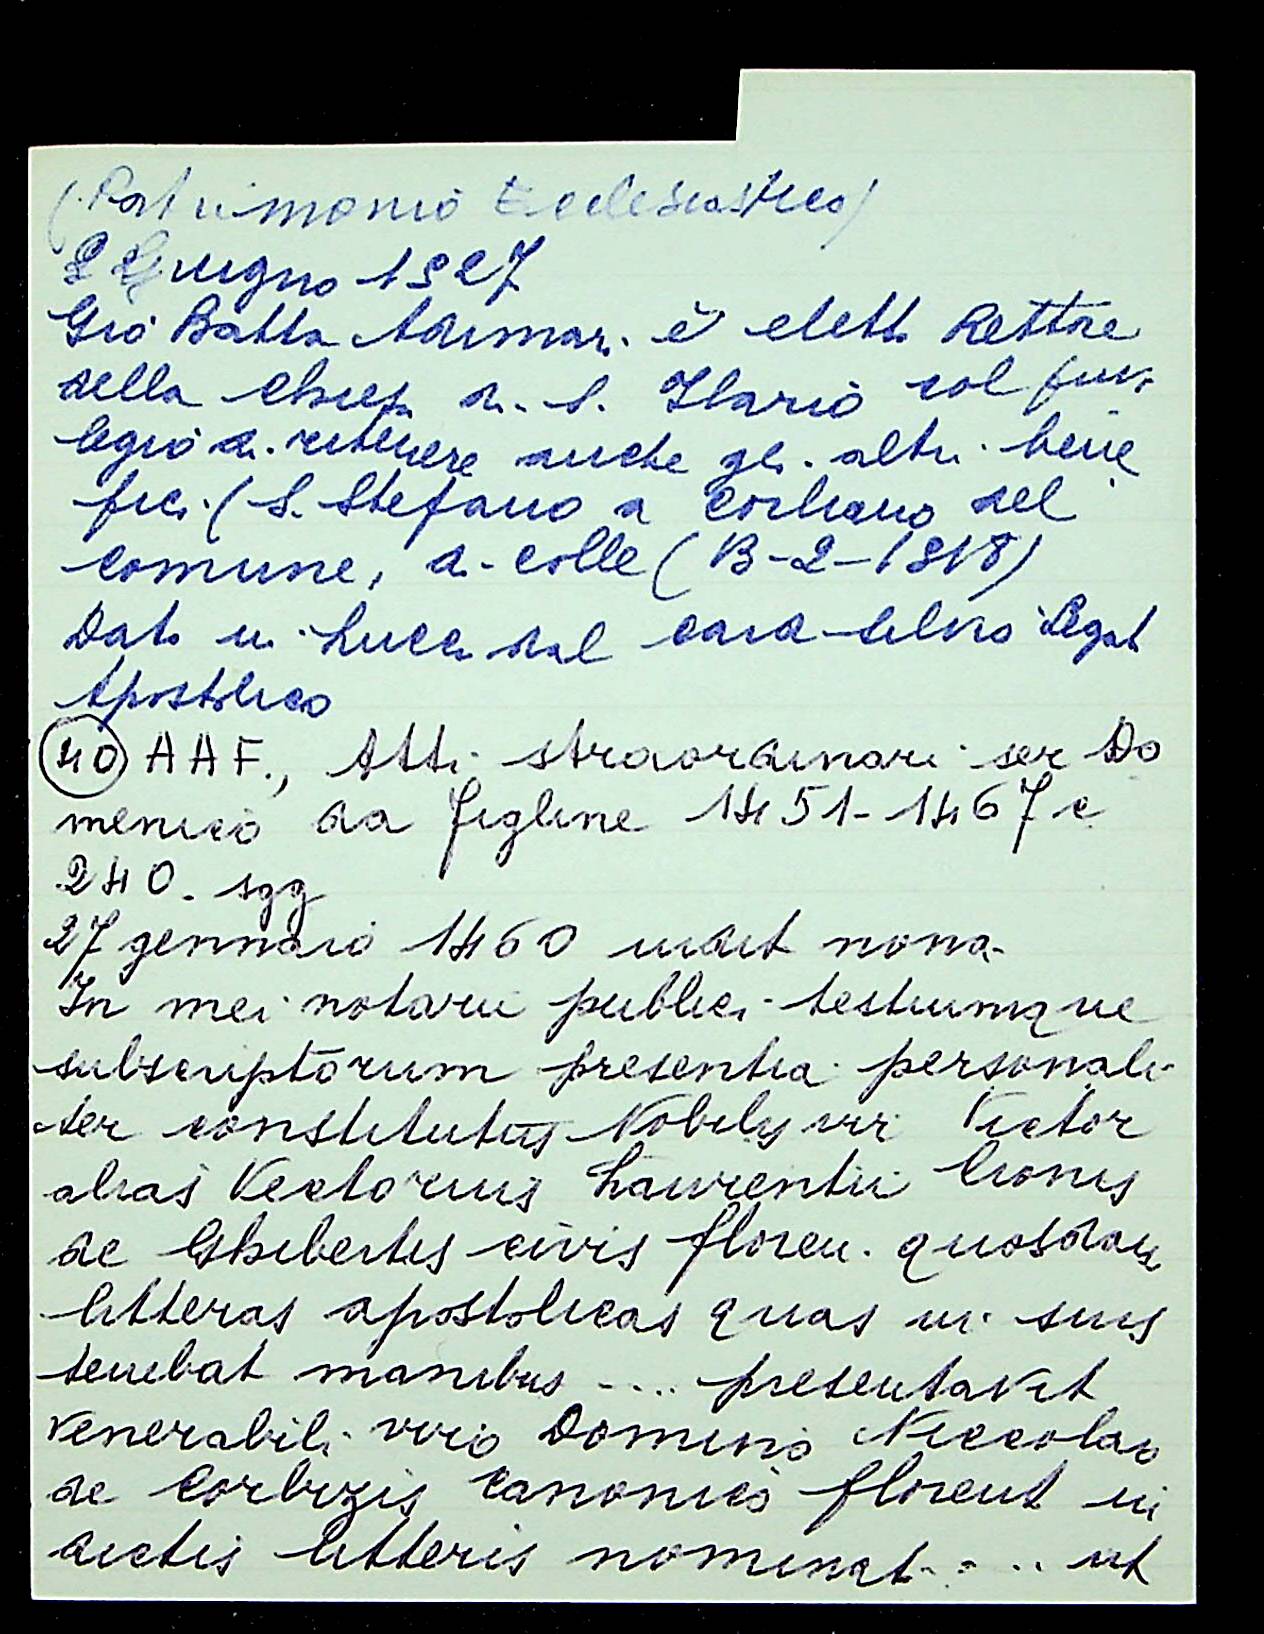 (Patrimonio Ecclesiastico)
2 Giugno 1527
Gio Batta Adimari è eletto Rettore
della chiesa di S. Ilario col privi
legio di ritenere anche gli altri bene
fici (S. Stefano a Corliano del
comune, di Colle (B-2-1818)
Dato in Lucca dal Legat
Apostolico
(40) AAF., Atti straordinari ser Do
menico da Figline 1451-1467 c
240. sgg
27 gennaio 1460 indict nona
In mei notarii publici testiumque
subscriptorum presentia personali
ter constitutus Nobilis vir Victor
alias Vectorius Laurentii Cionis
de Ghibertis civis floren. quasdam
litteras apostolicas quas in suis
tenebat manibus .... presentavit
Venerabili viro Domino Niccolao
de Corbizis canonico florent in
dictis litteris nominat .... ut